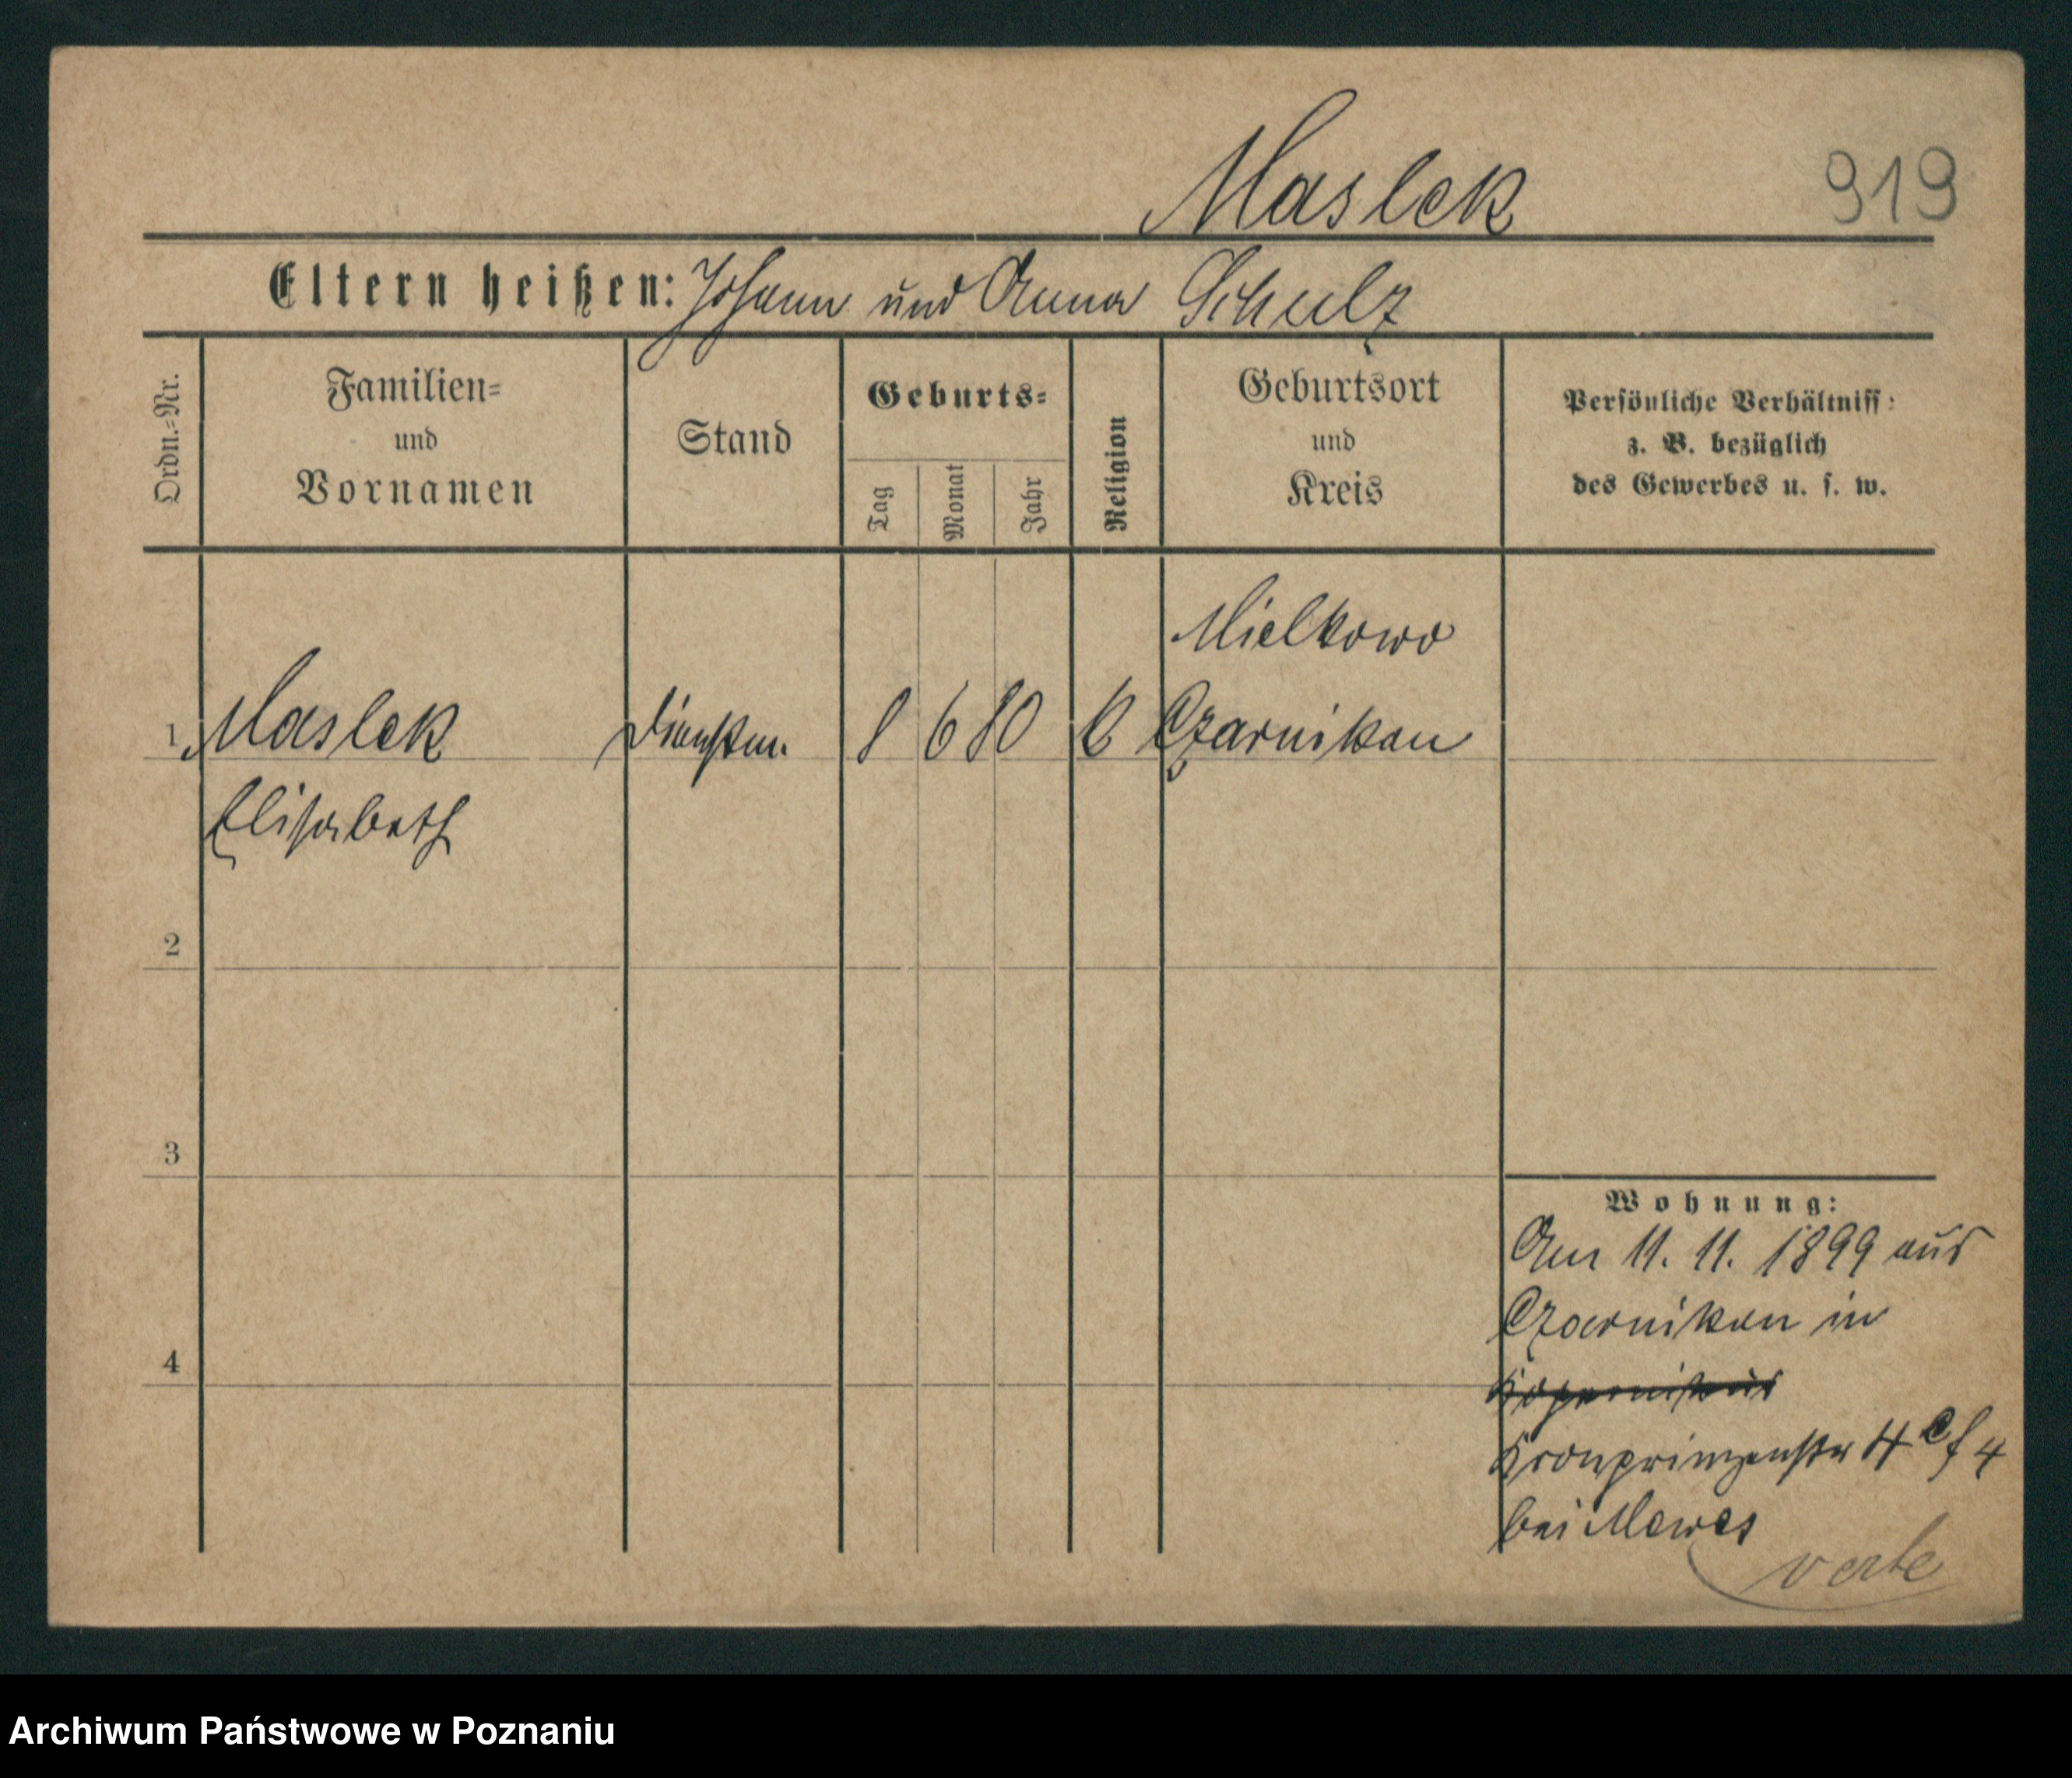 Maslek
919
Eltern heißen: Johann und Anna Schulz
Ordn.-Nr.
Familien-
und
Vornamen
Stand
Geburts-
Tag
Monat
Jahr
Religion
Geburtsort
und
Kreis
Persönliche Verhältniss:
z. B. bezüglich
des Gewerbes u. s. w.
Mielkowo
1 Maslek Dienstm. 8 6 80 k Czarnikau
Elisabeth
2
3
4
Wohnung:
Am 11. 11. 1899 aus
Czarnikau in
Kopernikus
Kronprinzenstr 4
bei Mewes
verte
Archiwum Państwowe w Poznaniu